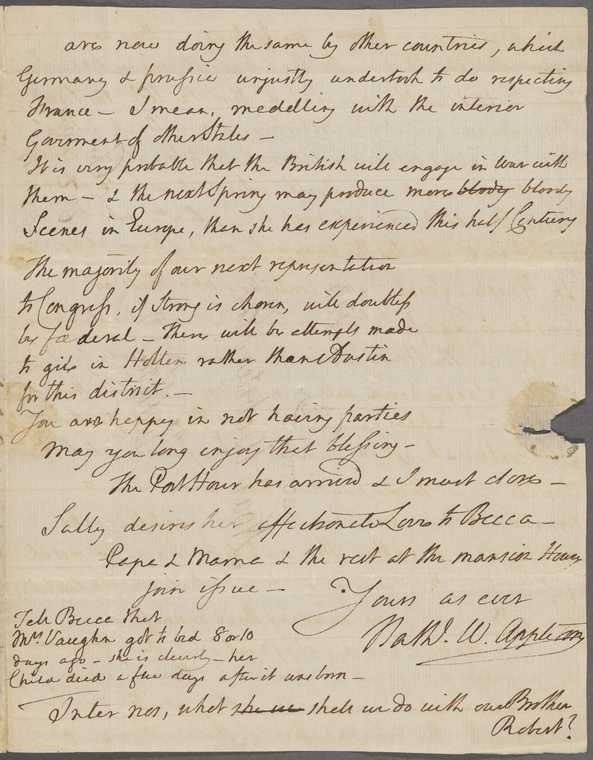 are now doing the same by other countries, which
Germany & prussia unjustly undertook to do respecting
France – I mean, medelling with the interior
Goverment of other States –
It is very probable that the British will engage in War with
them – & the next Spring may produce more bloody bloody
Scenes in Europe, than she has experienced this half Century
The majority of our next representation
to Congress, if Strong is chosen, will doubtless
be fœderal – There will be attempts made
to give in Holten rather than Austin
for this district. –
You are happy in not having parties
May you long enjoy that blessing –
The Post Hour has arrived & I must close –
Sally desires her affectionate Love to Becca –
Papa & Mama & the rest at the mansion House
join issue –
Yours as ever
Nathl. W. Appleton
Tell Becca that
Mrs. Vaughn got to bed 8 or 10
days ago – she is cleverly – her
Child died a few days after it was born –
Inter nos, what she we shall we do with our Brother
Robert?